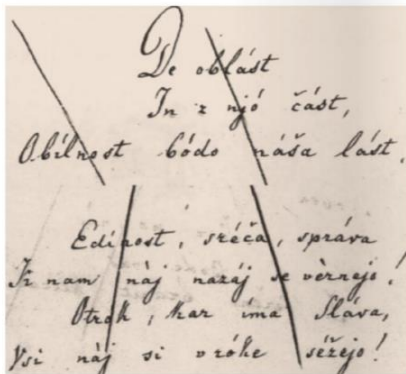 De oblást
In z njó část,
Obílnost bódo náša lást,
Edinost, sréča, správa
K nam nàj nazáj se vèrnejo!
Otrók, kar ima Sláva,
Vsi nàj si v róke séžejo!